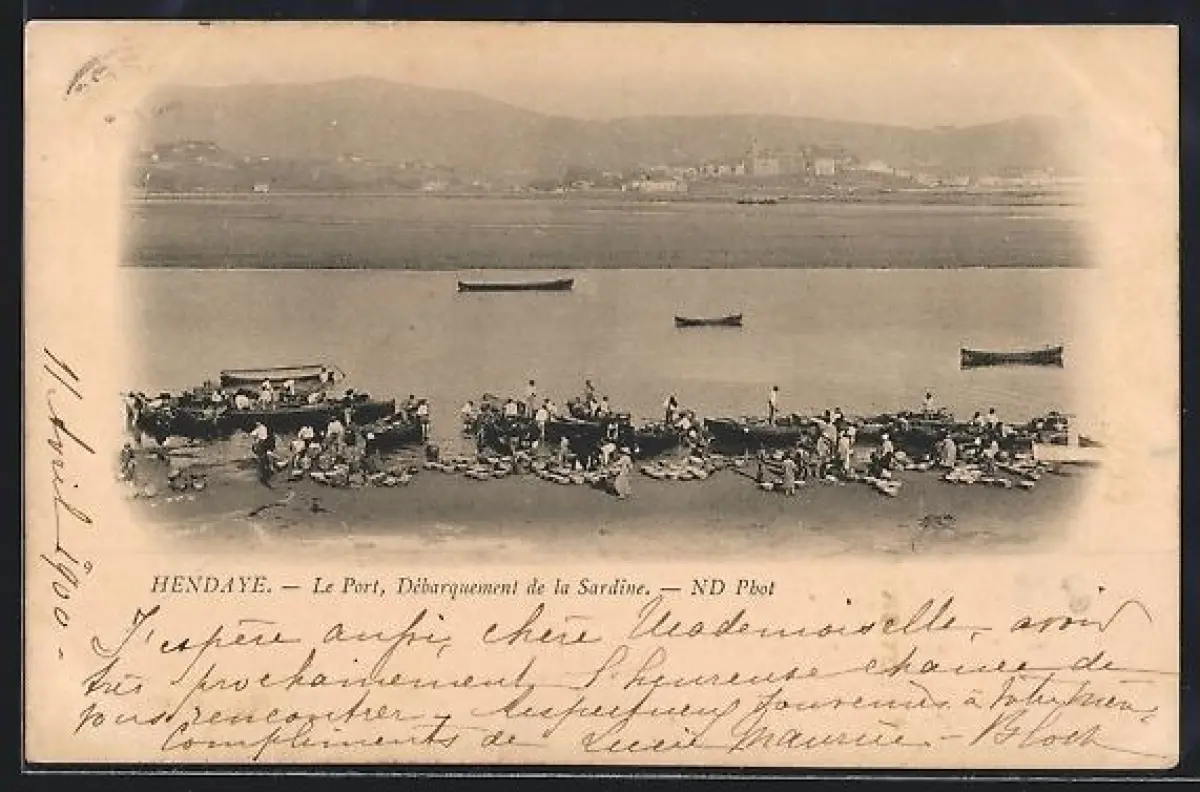 11 Avril 1900 -
HENDAYE. — Le Port, Débarquement de la Sardine. — ND Phot
J'espère aussi, chère Mademoiselle, avoir
très prochainement l'heureuse chance de
vous rencontrer. Respectueux souvenirs à Votre Mère,
Compliments de Lucie Maurice - Bloch